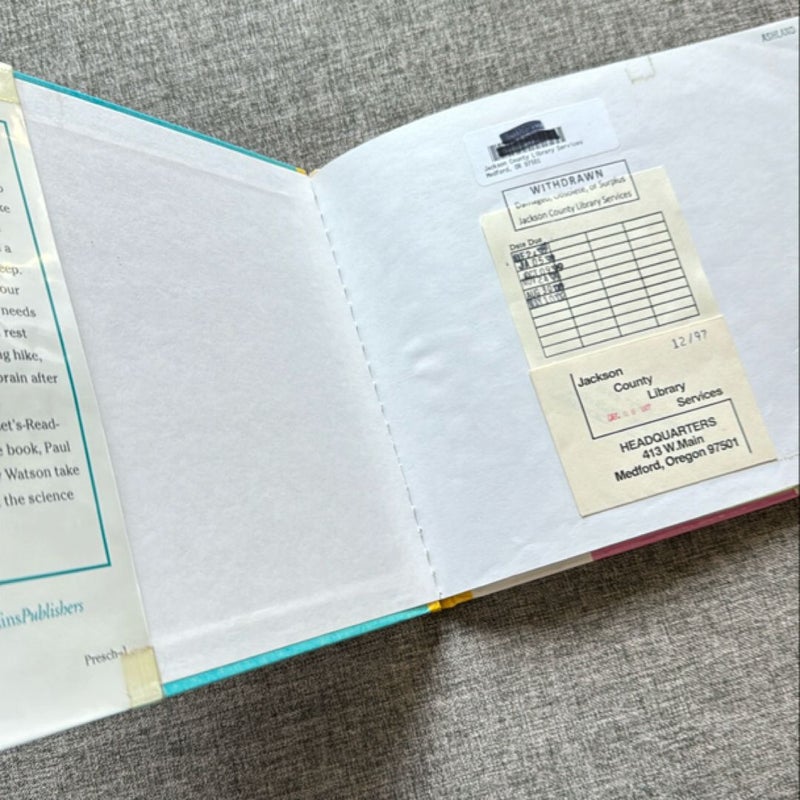 ke
a
eep.
our
needs
rest
ng hike,
brain after
et's-Read-
e book, Paul
Watson take
the science
insPublishers
Presch-1
ASHLAND
Jackson County Library Services
Medford, OR 97501
WITHDRAWN
Damaged, Obsolete, or Surplus
Jackson County Library Services
Date Due
12/97
Jackson
County
Library
Services
HEADQUARTERS
413 W.Main
Medford, Oregon 97501